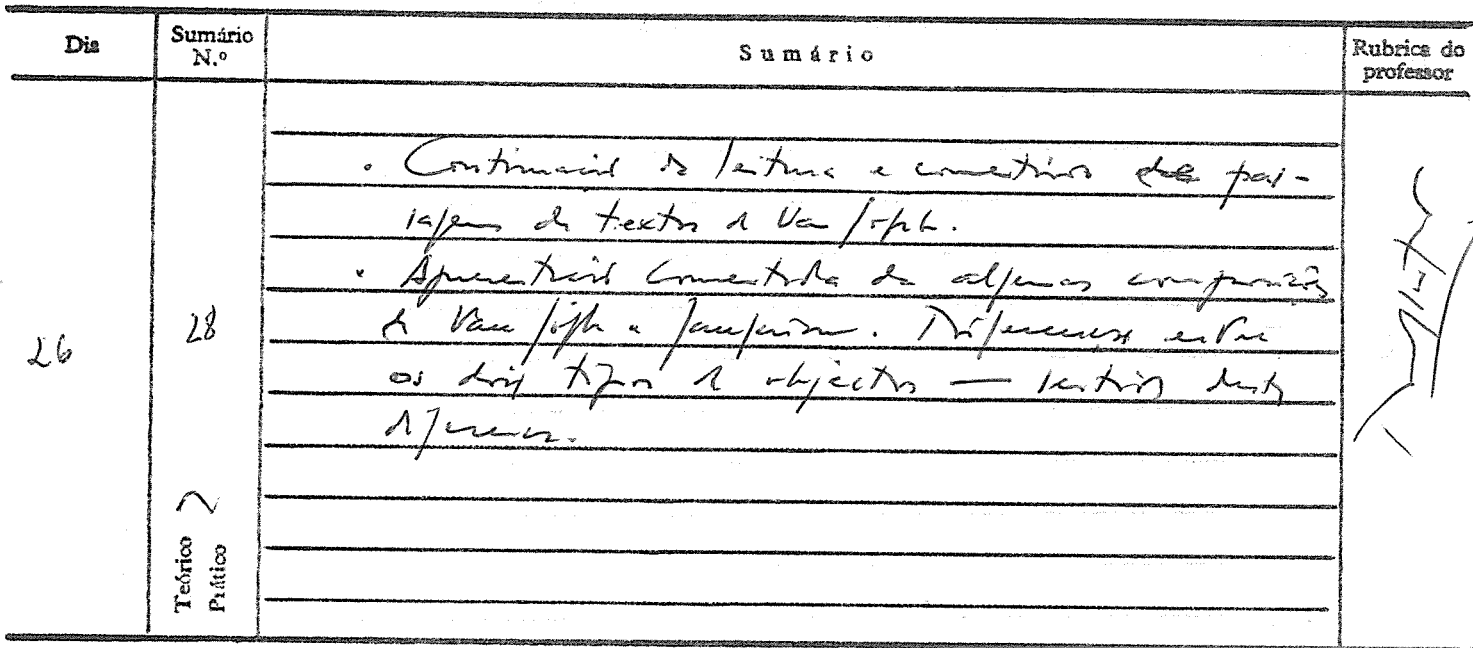 Dia Sumário N.º Sumário Rubrica do professor
. Continuação da leitura e comentários de pas-
sagens de textos de Van Gogh.
. Apresentação comentada de algumas composições
de Van Gogh e Gauguin. Diferenças entre
os dois tipos de objectos — sentido desta
diferença.
26 28
Teórico
Prático